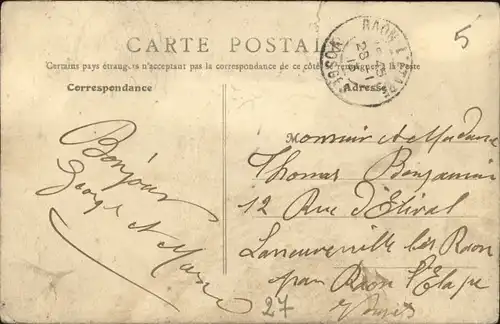 5
RAON L'ETAPE
28 -1
VOSGES
CARTE POSTALE
Certains pays étrangers n'acceptant pas la correspondance de ce côté, se renseigner à la Poste
Correspondance
Adresse
Bonjour
George et
Monsieur et Madame
Thomas Benjamin
12 Rue d'Etival
Laneuveville les Raon
par Raon l'Etape
Vosges
27